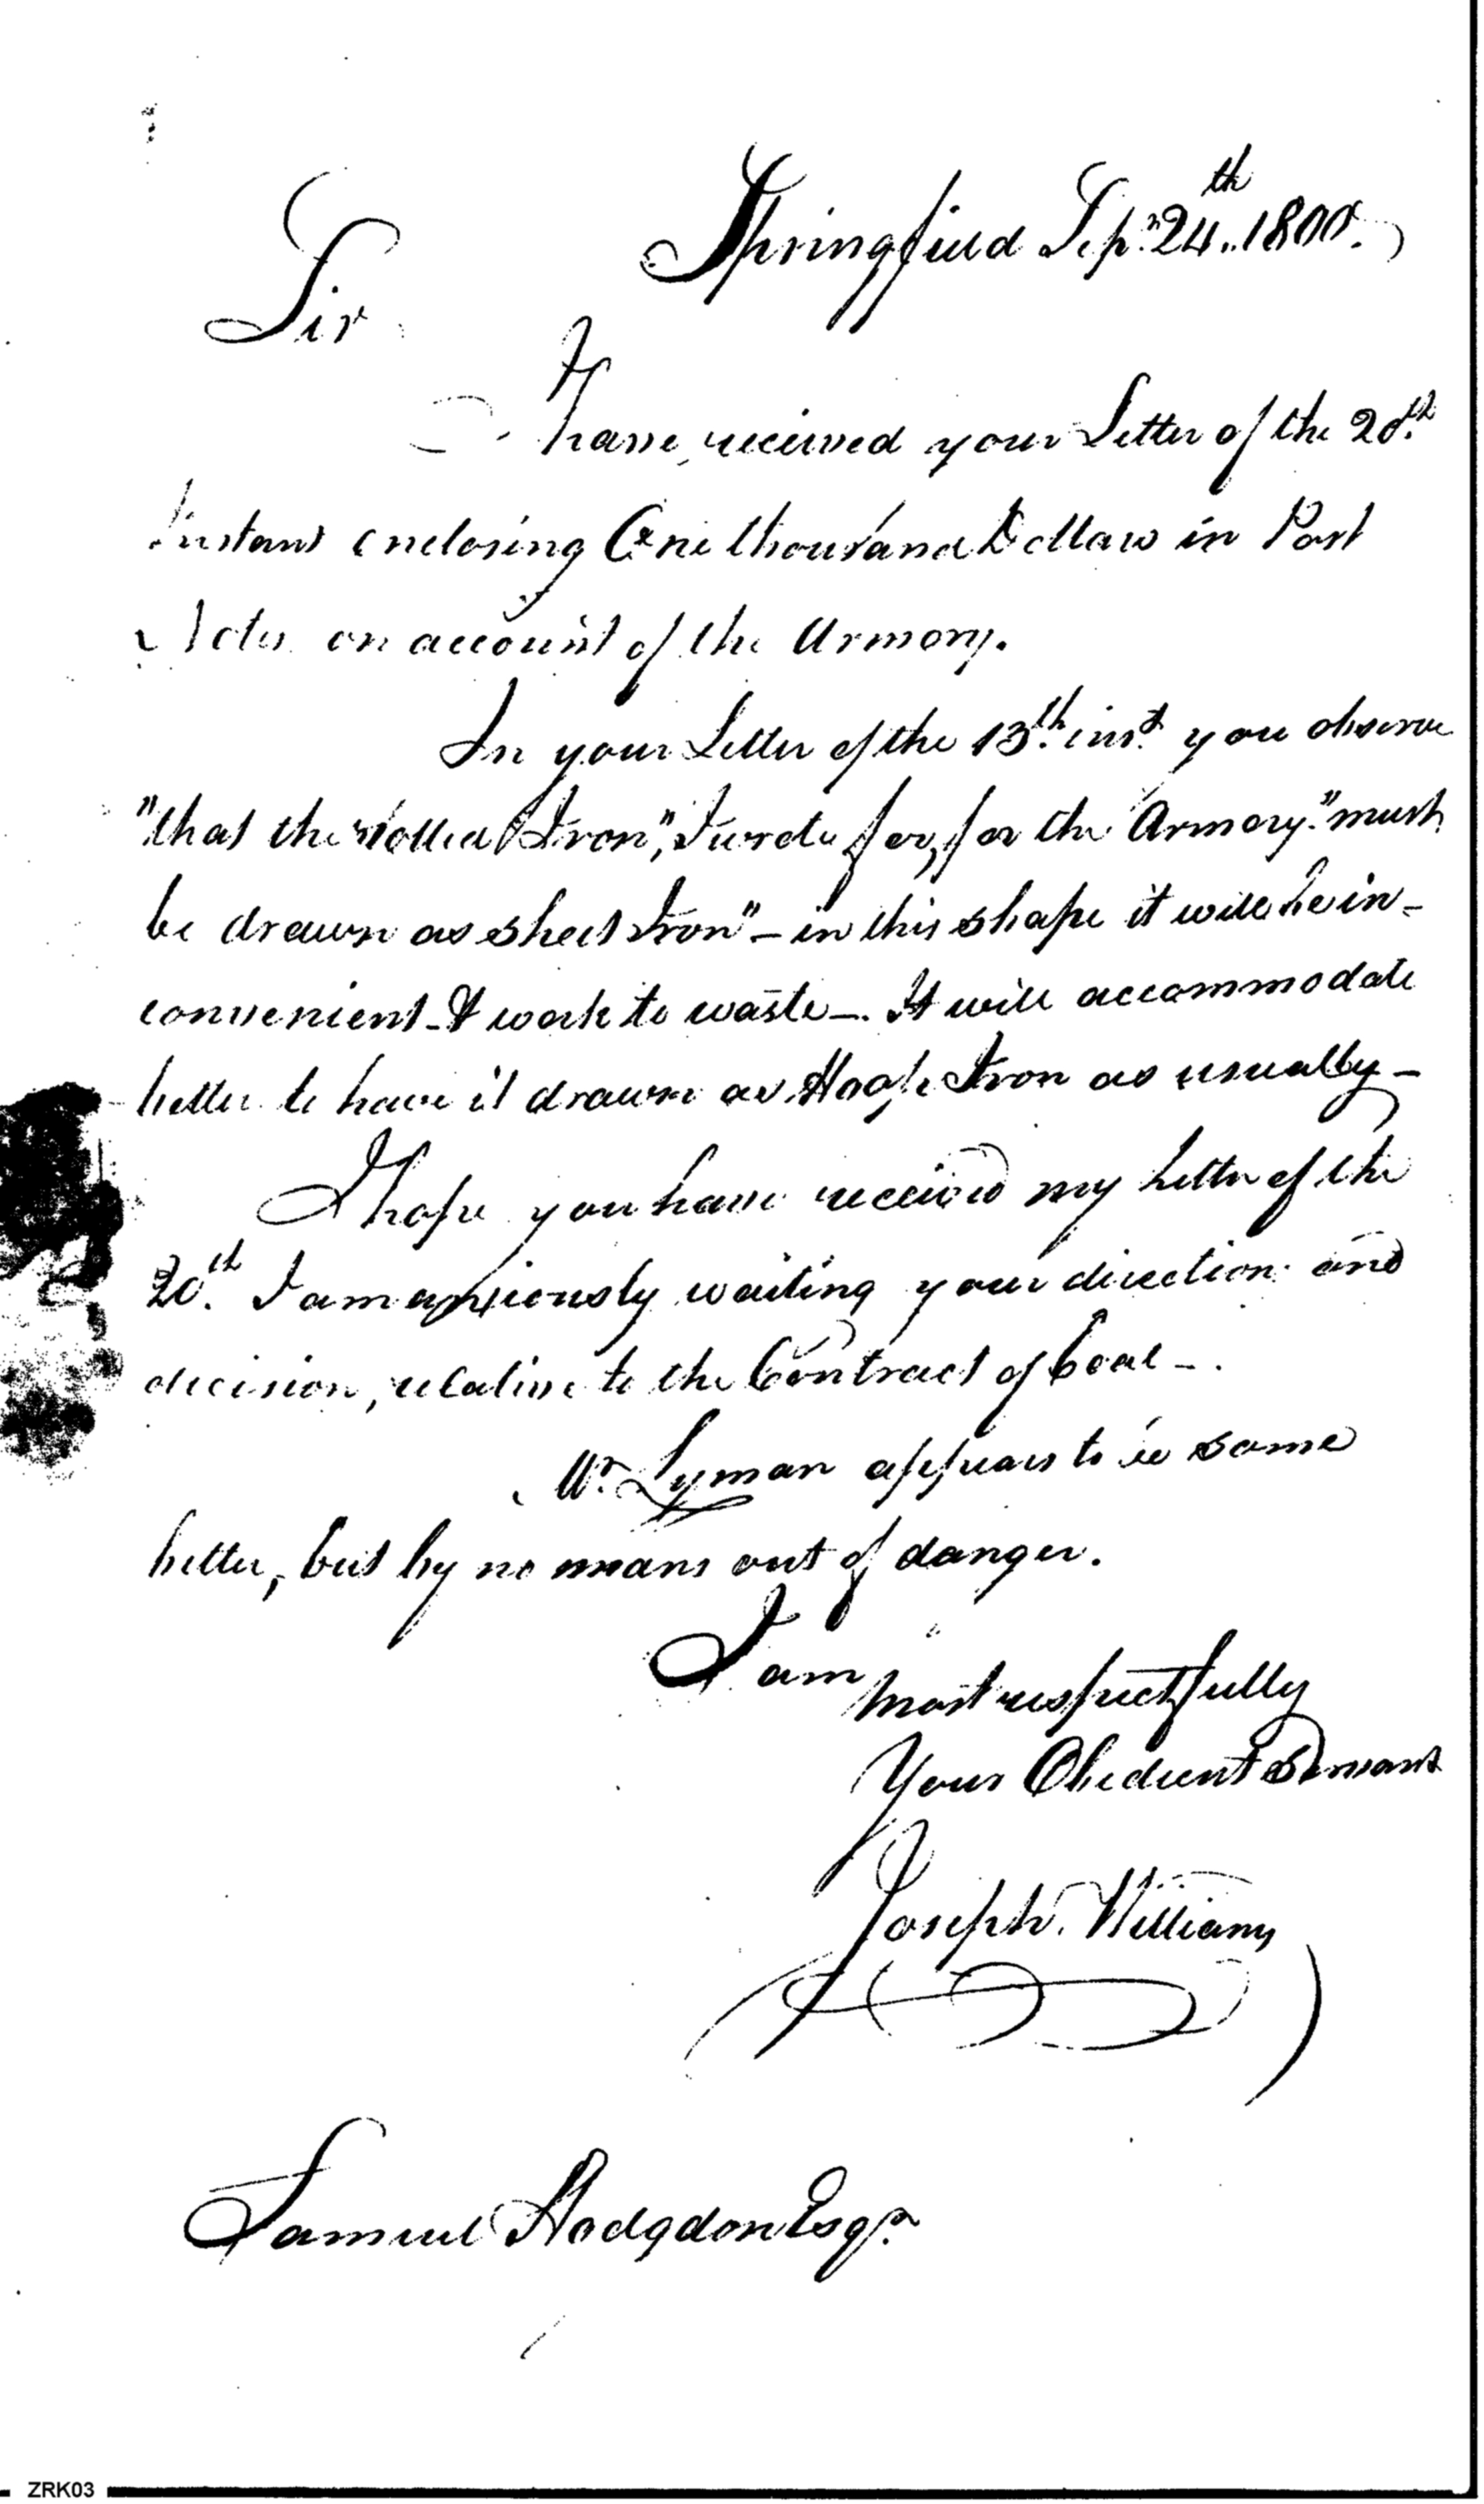 Springfield Sep.r 24th 1800.
Sir
I have received your Letter of the 20th
Instant enclosing One thousand Dollars in Post
Notes on account of the Armory.
In your Letter of the 13th inst. you observe
"that the rolled Iron," I wrote for, for the Armory "must
be drawn as sheet Iron" – in this shape it will be in-
convenient & work to waste –. It will accommodate
better to have it drawn as Hoop Iron as usually –
I hope you have received my Letter of the
20th. I am anxiously waiting your direction and
decision, relative to the Contract of Coal –.
Mr. Lyman appears to be some
better, but by no means out of danger.
I am
most respectfully
Your Obedient Servant
Joseph Williams
Samuel Hodgdon Esqr.
ZRK03